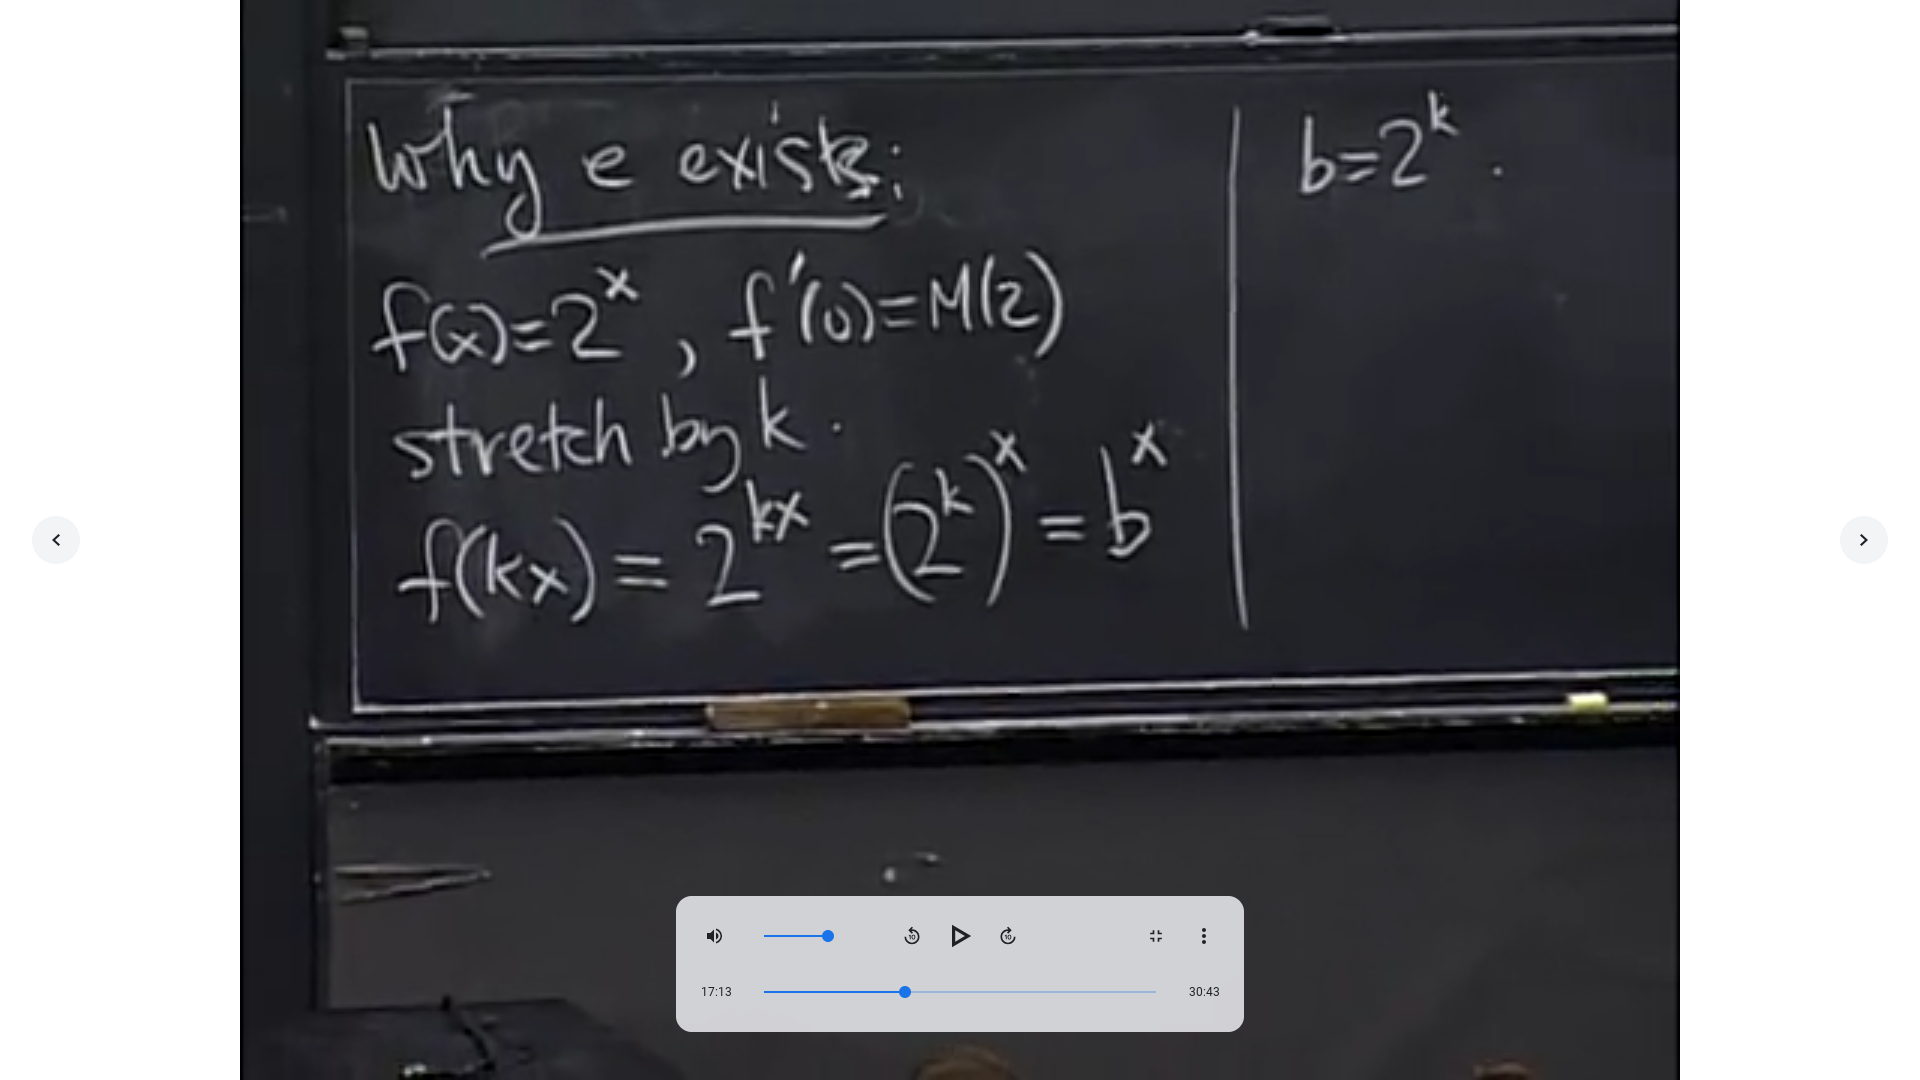 Why e exists:
f(x)=2^x, f'(0)=M(2)
stretch by k.
f(kx) = 2^kx = (2^k)^x = b^x
b=2^k.
10
10
17:13
30:43